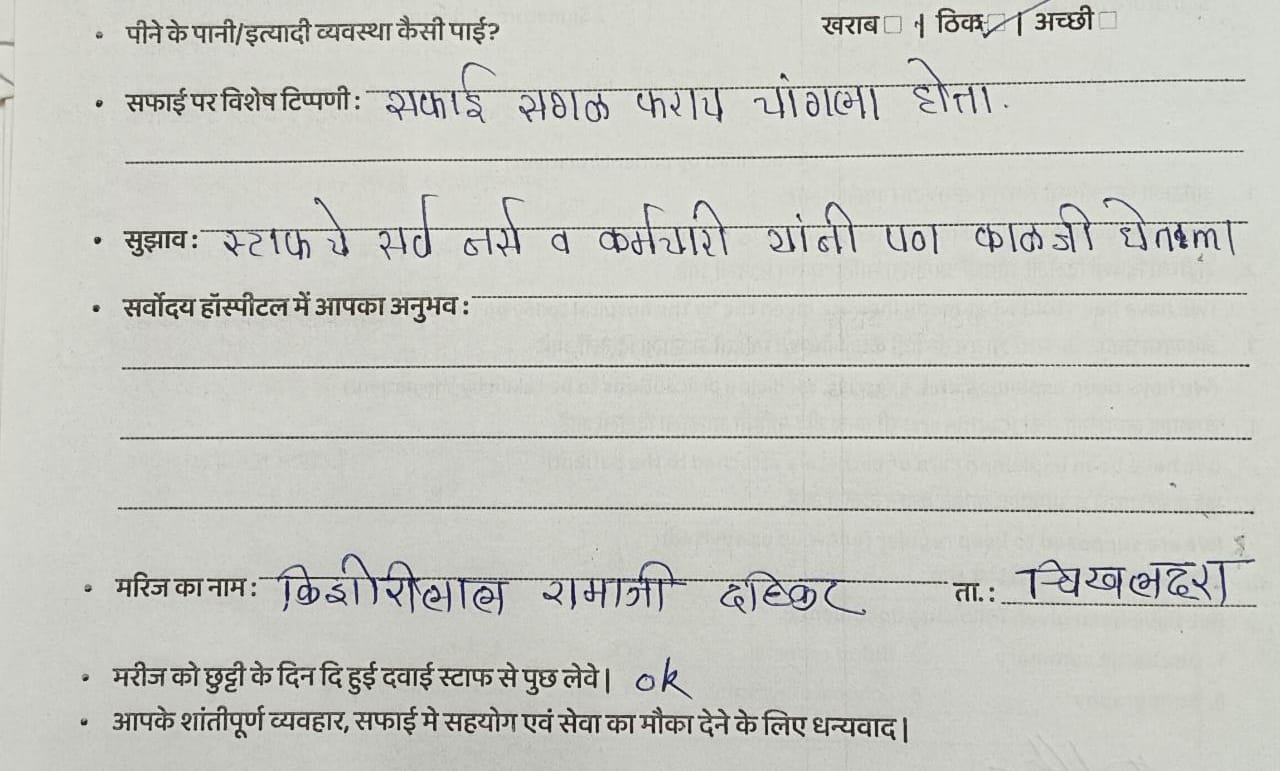 • पीने के पानी/इत्यादी व्यवस्था कैसी पाई? खराब □ | ठिक ☑ | अच्छी □
• सफाई पर विशेष टिप्पणी : सफाई सगळ कराय चांगला होता.
• सुझाव : स्टाफ चे सर्व नर्स व कर्मचारी यांनी पण काळजी घेतला
• सर्वोदय हॉस्पीटल में आपका अनुभव :
• मरिज का नाम : किशोरीलाल रामाजी दहिकर ता. : चिखलदरा
• मरीज को छुट्टी के दिन दि हुई दवाई स्टाफ से पुछ लेवे | ok
• आपके शांतीपूर्ण व्यवहार, सफाई मे सहयोग एवं सेवा का मौका देने के लिए धन्यवाद |